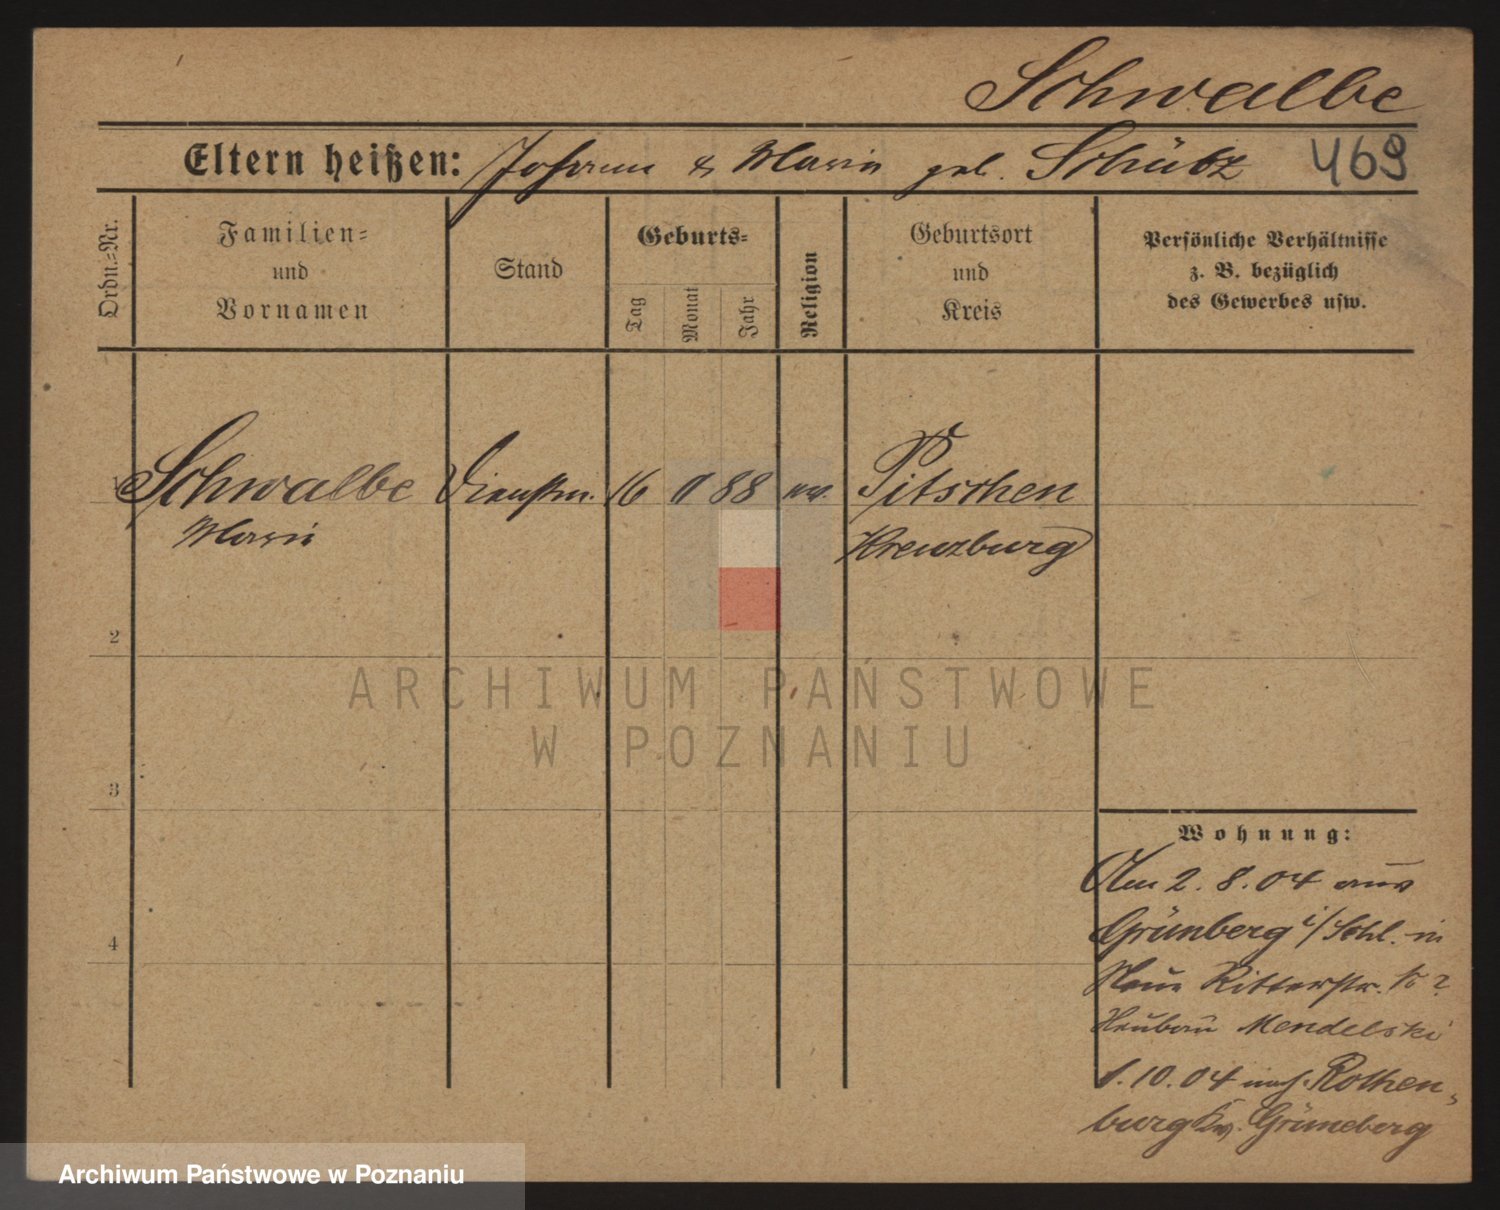 Schwalbe
Eltern heißen: Johann & Marie geb. Schütz 469
Ordn.=Nr.
Familien=
und
Vornamen
Stand
Geburts=
Tag
Monat
Jahr
Religion
Geburtsort
und
Kreis
Persönliche Verhältnisse
z. B. bezüglich
des Gewerbes usw.
1 Schwalbe Dienstm. 16 88 ev. Pitschen
Marie Kreuzburg
2
3
4
Wohnung:
Am 2. 8. 04 aus
Grünberg i/Schl. in
Neue Ritterstr.
Neubau Mendelski
1. 10. 04 nach Rothen-
burg Kr. Grüneberg
ARCHIWUM PAŃSTWOWE
W POZNANIU
Archiwum Państwowe w Poznaniu